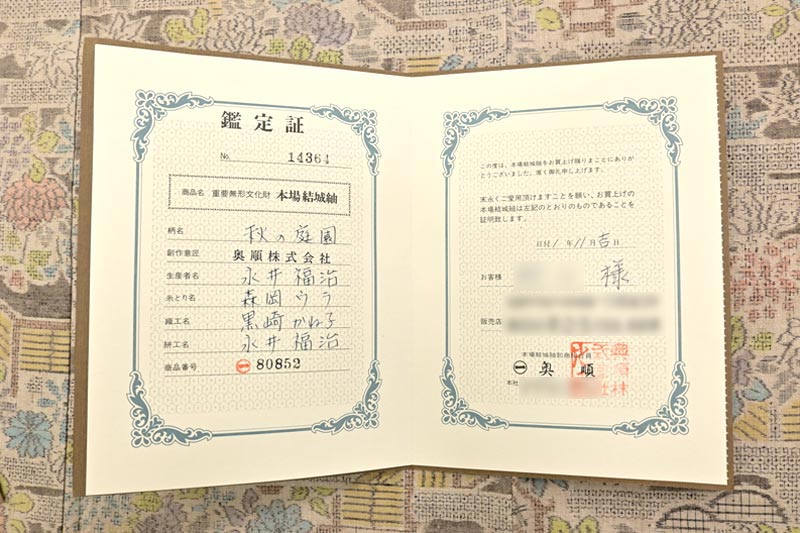 鑑定証
No. 14364
商品名 重要無形文化財 本場結城紬
柄名 秋の庭園
創作意匠 奥順株式会社
生産者名 永井福治
糸とり名 森岡ウラ
織工名 黒崎かね子
絣工名 永井福治
商品番号 ㊀ 80852
この度は、本場結城紬をお買上げ賜りまことにありが
とうございました。厚く御礼申し上げます。
末永くご愛用頂けますことを願い、お買上げの
本場結城紬は左記のとおりのものであることを
証明致します。
年 11月 吉日
お客様 様
販売店
本場結城紬卸商
㊀ 奥順
本社